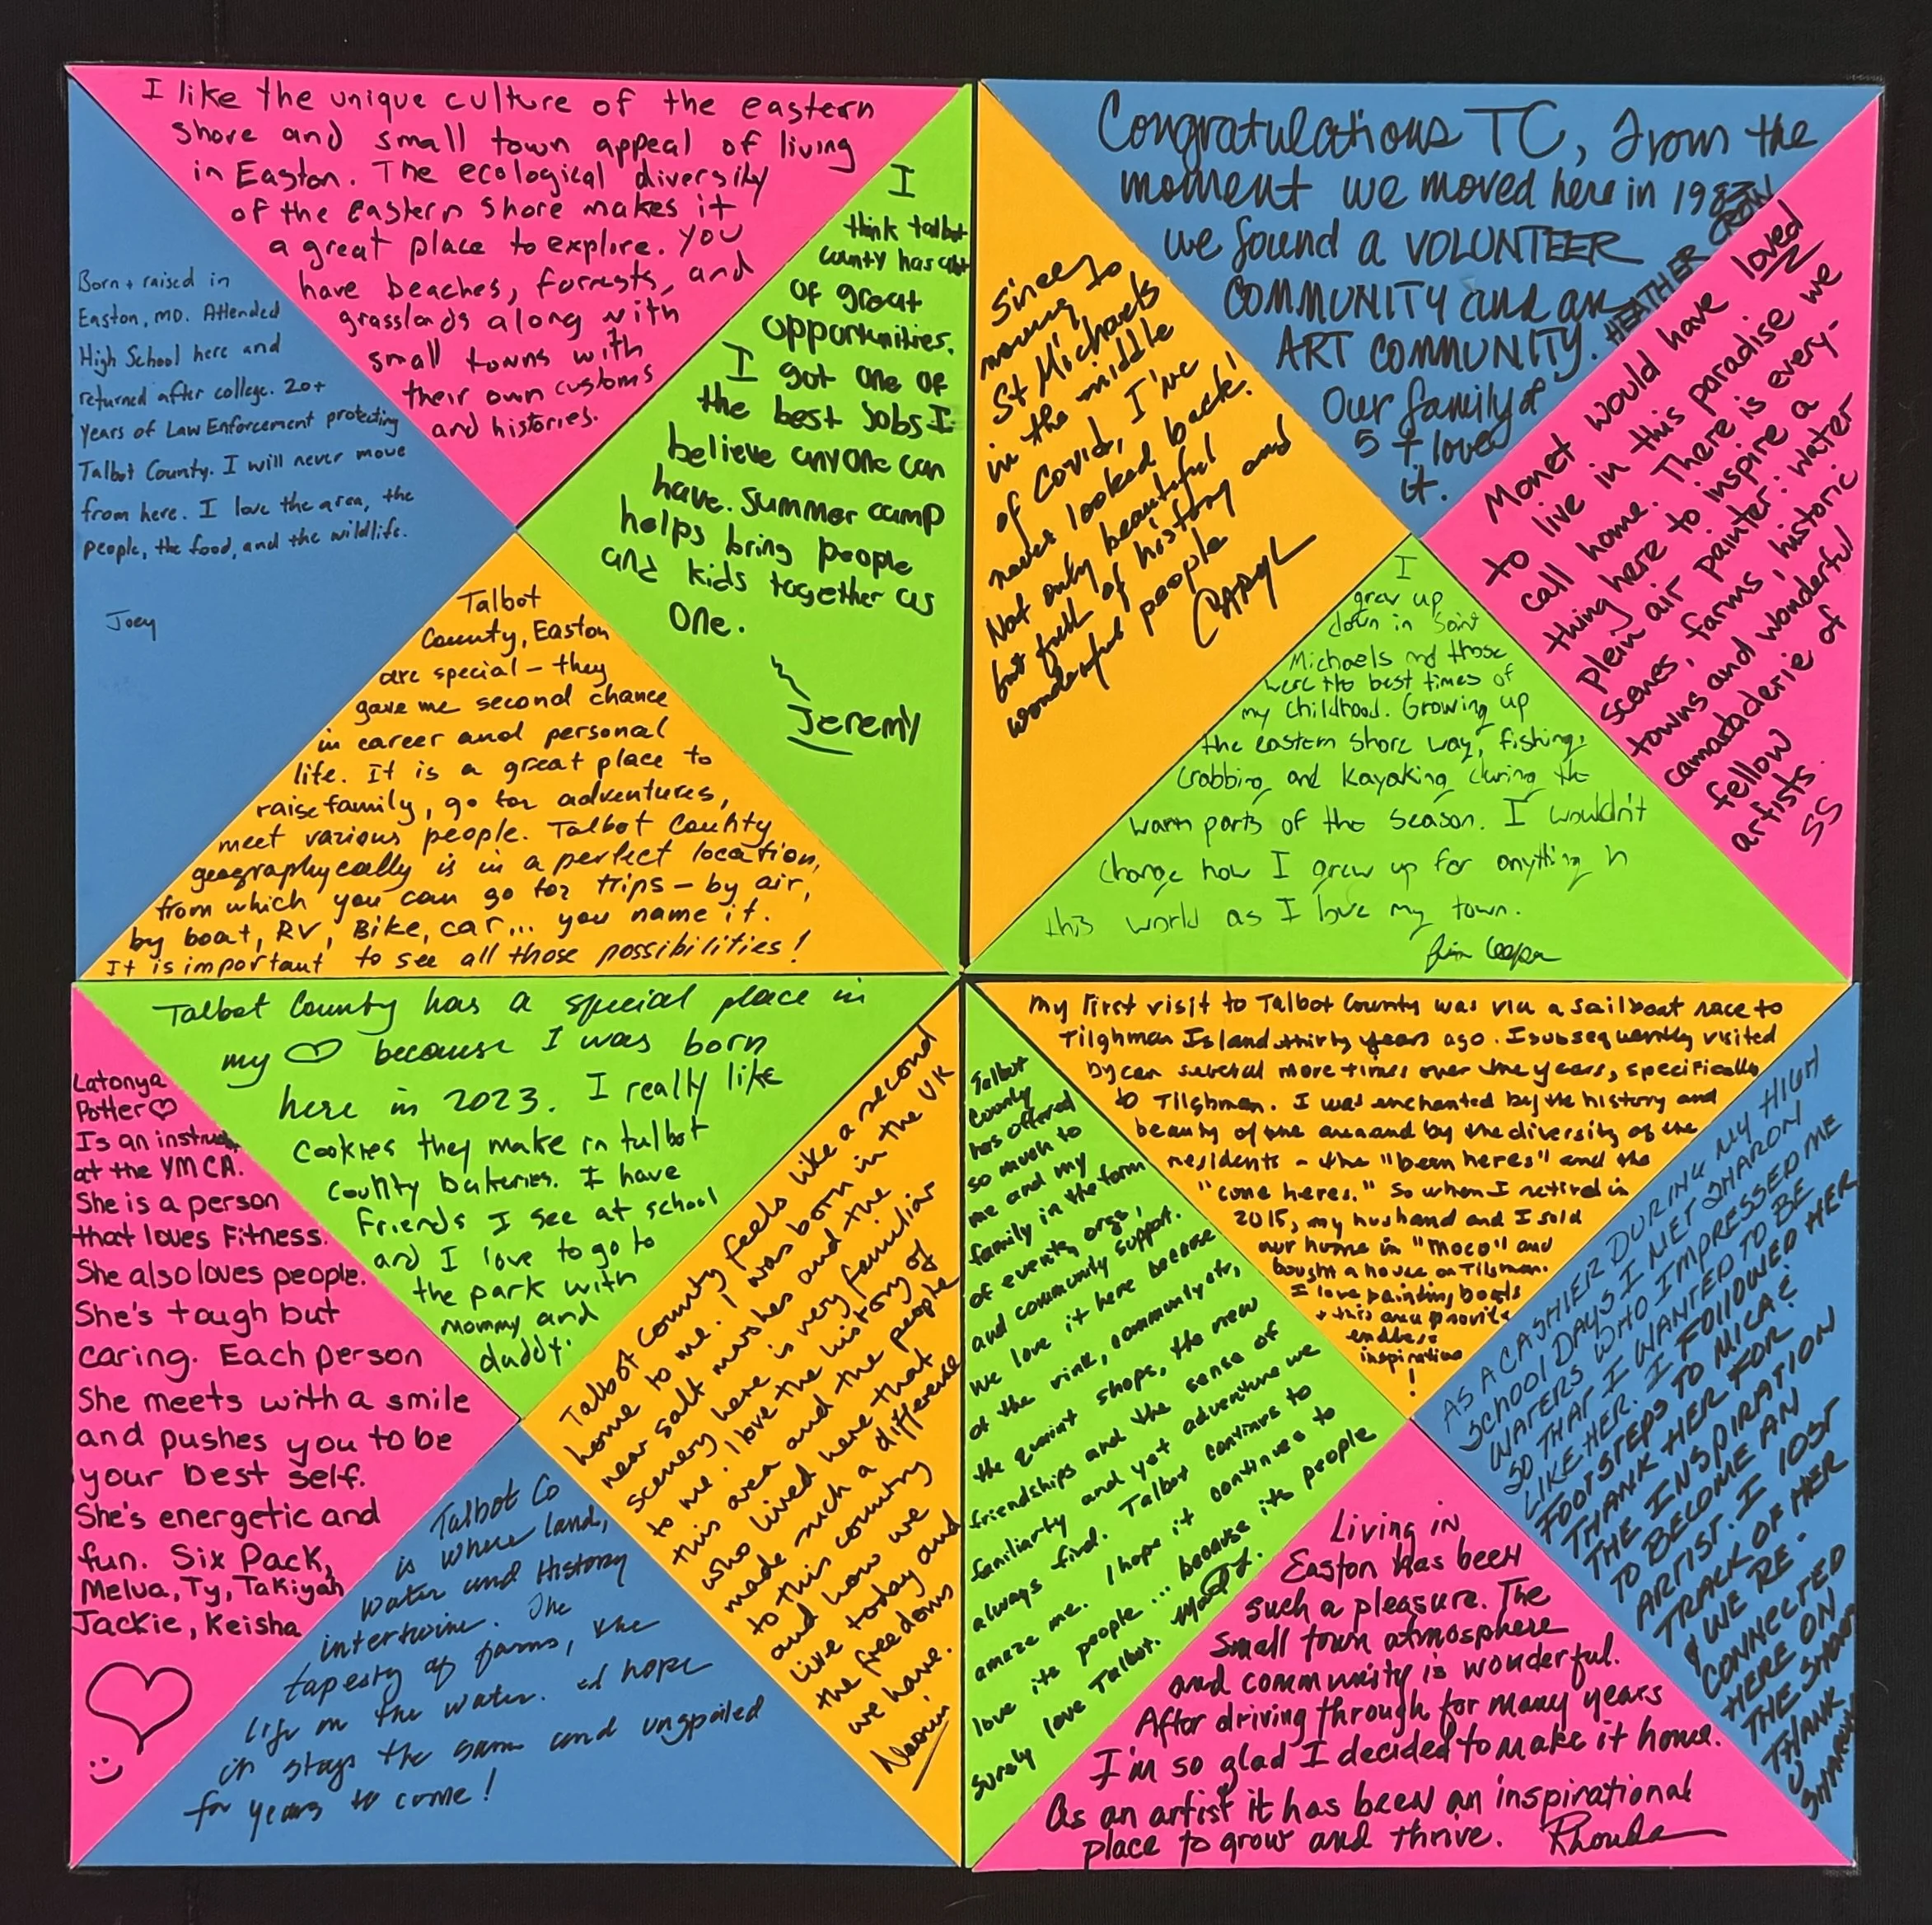 I like the unique culture of the eastern
shore and small town appeal of living
in Easton. The ecological diversity
of the eastern shore makes it
a great place to explore. You
have beaches, forrests, and
grasslands along with
small towns with
their own customs
and histories.
Born + raised in
Easton, MD. Attended
High School here and
returned after college. 20+
years of Law Enforcement protecting
Talbot County. I will never move
from here. I love the area, the
people, the food, and the wildlife.
Joey
I
think talbot
county has alot
of great
opportunities.
I got one of
the best Jobs I
believe anyone can
have. Summer camp
helps bring people
and kids together as
one.
Jeremy
Talbot
County, Easton
are special – they
gave me second chance
in career and personal
life. It is a great place to
raise family, go for adventures,
meet various people. Talbot County
geographycally is in a perfect location,
from which you can go for trips – by air,
by boat, RV, Bike, car... you name it.
It is important to see all those possibilities!
Congratulations TC, from the
moment we moved here in 1983
we found a VOLUNTEER
COMMUNITY and an
ART COMMUNITY.
Our family of
5 + loves
it.
HEATHER CROW
Since
moving to
St Michaels
in the middle
of Covid, I've
never looked back!
Not only beautiful
but full of history and
wonderful people
CARYL
Monet would have loved
to live in this paradise we
call home. There is every-
thing here to inspire a
plein air painter: water
scenes, farms, historic
towns and wonderful
camaraderie of
fellow
artists.
SS
I
grew up
down in Saint
Michaels and those
were the best times of
my childhood. Growing up
the eastern shore way, fishing,
crabbing and kayaking during the
warm parts of the season. I wouldn't
change how I grew up for anything in
this world as I love my town.
Talbot County has a special place in
my ♡ because I was born
here in 2023. I really like
cookies they make in talbot
county bakeries. I have
friends I see at school
and I love to go to
the park with
mommy and
daddy.
Latonya
Potter ♡
Is an instruct
at the YMCA.
She is a person
that loves Fitness.
She also loves people.
She's tough but
caring. Each person
She meets with a smile
and pushes you to be
your best self.
She's energetic and
fun. Six Pack,
Melva, Ty, Takiyah
Jackie, Keisha
Talbot County feels like a second
home to me. I was born in the UK
near salt marshes and the
scenery here is very familiar
to me. I love the history of
this area and the people
who lived here that
made such a difference
to this country
and how we
live today and
the freedoms
we have.
Naomi
Talbot Co
is where land,
water and History
intertwine. The
tapesty of farms, the
life on the water. I hope
it stays the same and unspoiled
for years to come!
My first visit to Talbot County was via a sailboat race to
Tilghman Island thirty years ago. I subsequently visited
by car several more times over the years, specifically
to Tilghman. I was enchanted by the history and
beauty of the area and by the diversity of the
residents – the "been heres" and the
"come heres." So when I retired in
2015, my husband and I sold
our home in "MoCo" and
bought a house on Tilghman.
I love painting boats
+ this area provides
endless
inspiration
!
Talbot
County
has offered
so much to
me and my
family in the form
of events, orgs,
and community support.
We love it here because
of the rink, community ctr,
the quaint shops, the new
friendships and the sense of
familiarty and yet adventure we
always find. Talbot continues to
amaze me. I hope it continues to
love its people ... because its people
surely love Talbot.
AS A CASHIER DURING MY HIGH
SCHOOL DAYS I MET SHARON
WATERS WHO IMPRESSED ME
SO THAT I WANTED TO BE
LIKE HER. I FOLLOWED HER
FOOTSTEPS TO MICA &
THANK HER FOR
THE INSPIRATION
TO BECOME AN
ARTIST. I LOST
TRACK OF HER
& WE RE-
CONNECTED
HERE ON
THE SHORE
THANK
U
SHARON
Living in
Easton has been
such a pleasure. The
small town atmosphere
and community is wonderful.
After driving through for many years
I'm so glad I decided to make it home.
As an artist it has been an inspirational
place to grow and thrive. Rhonda